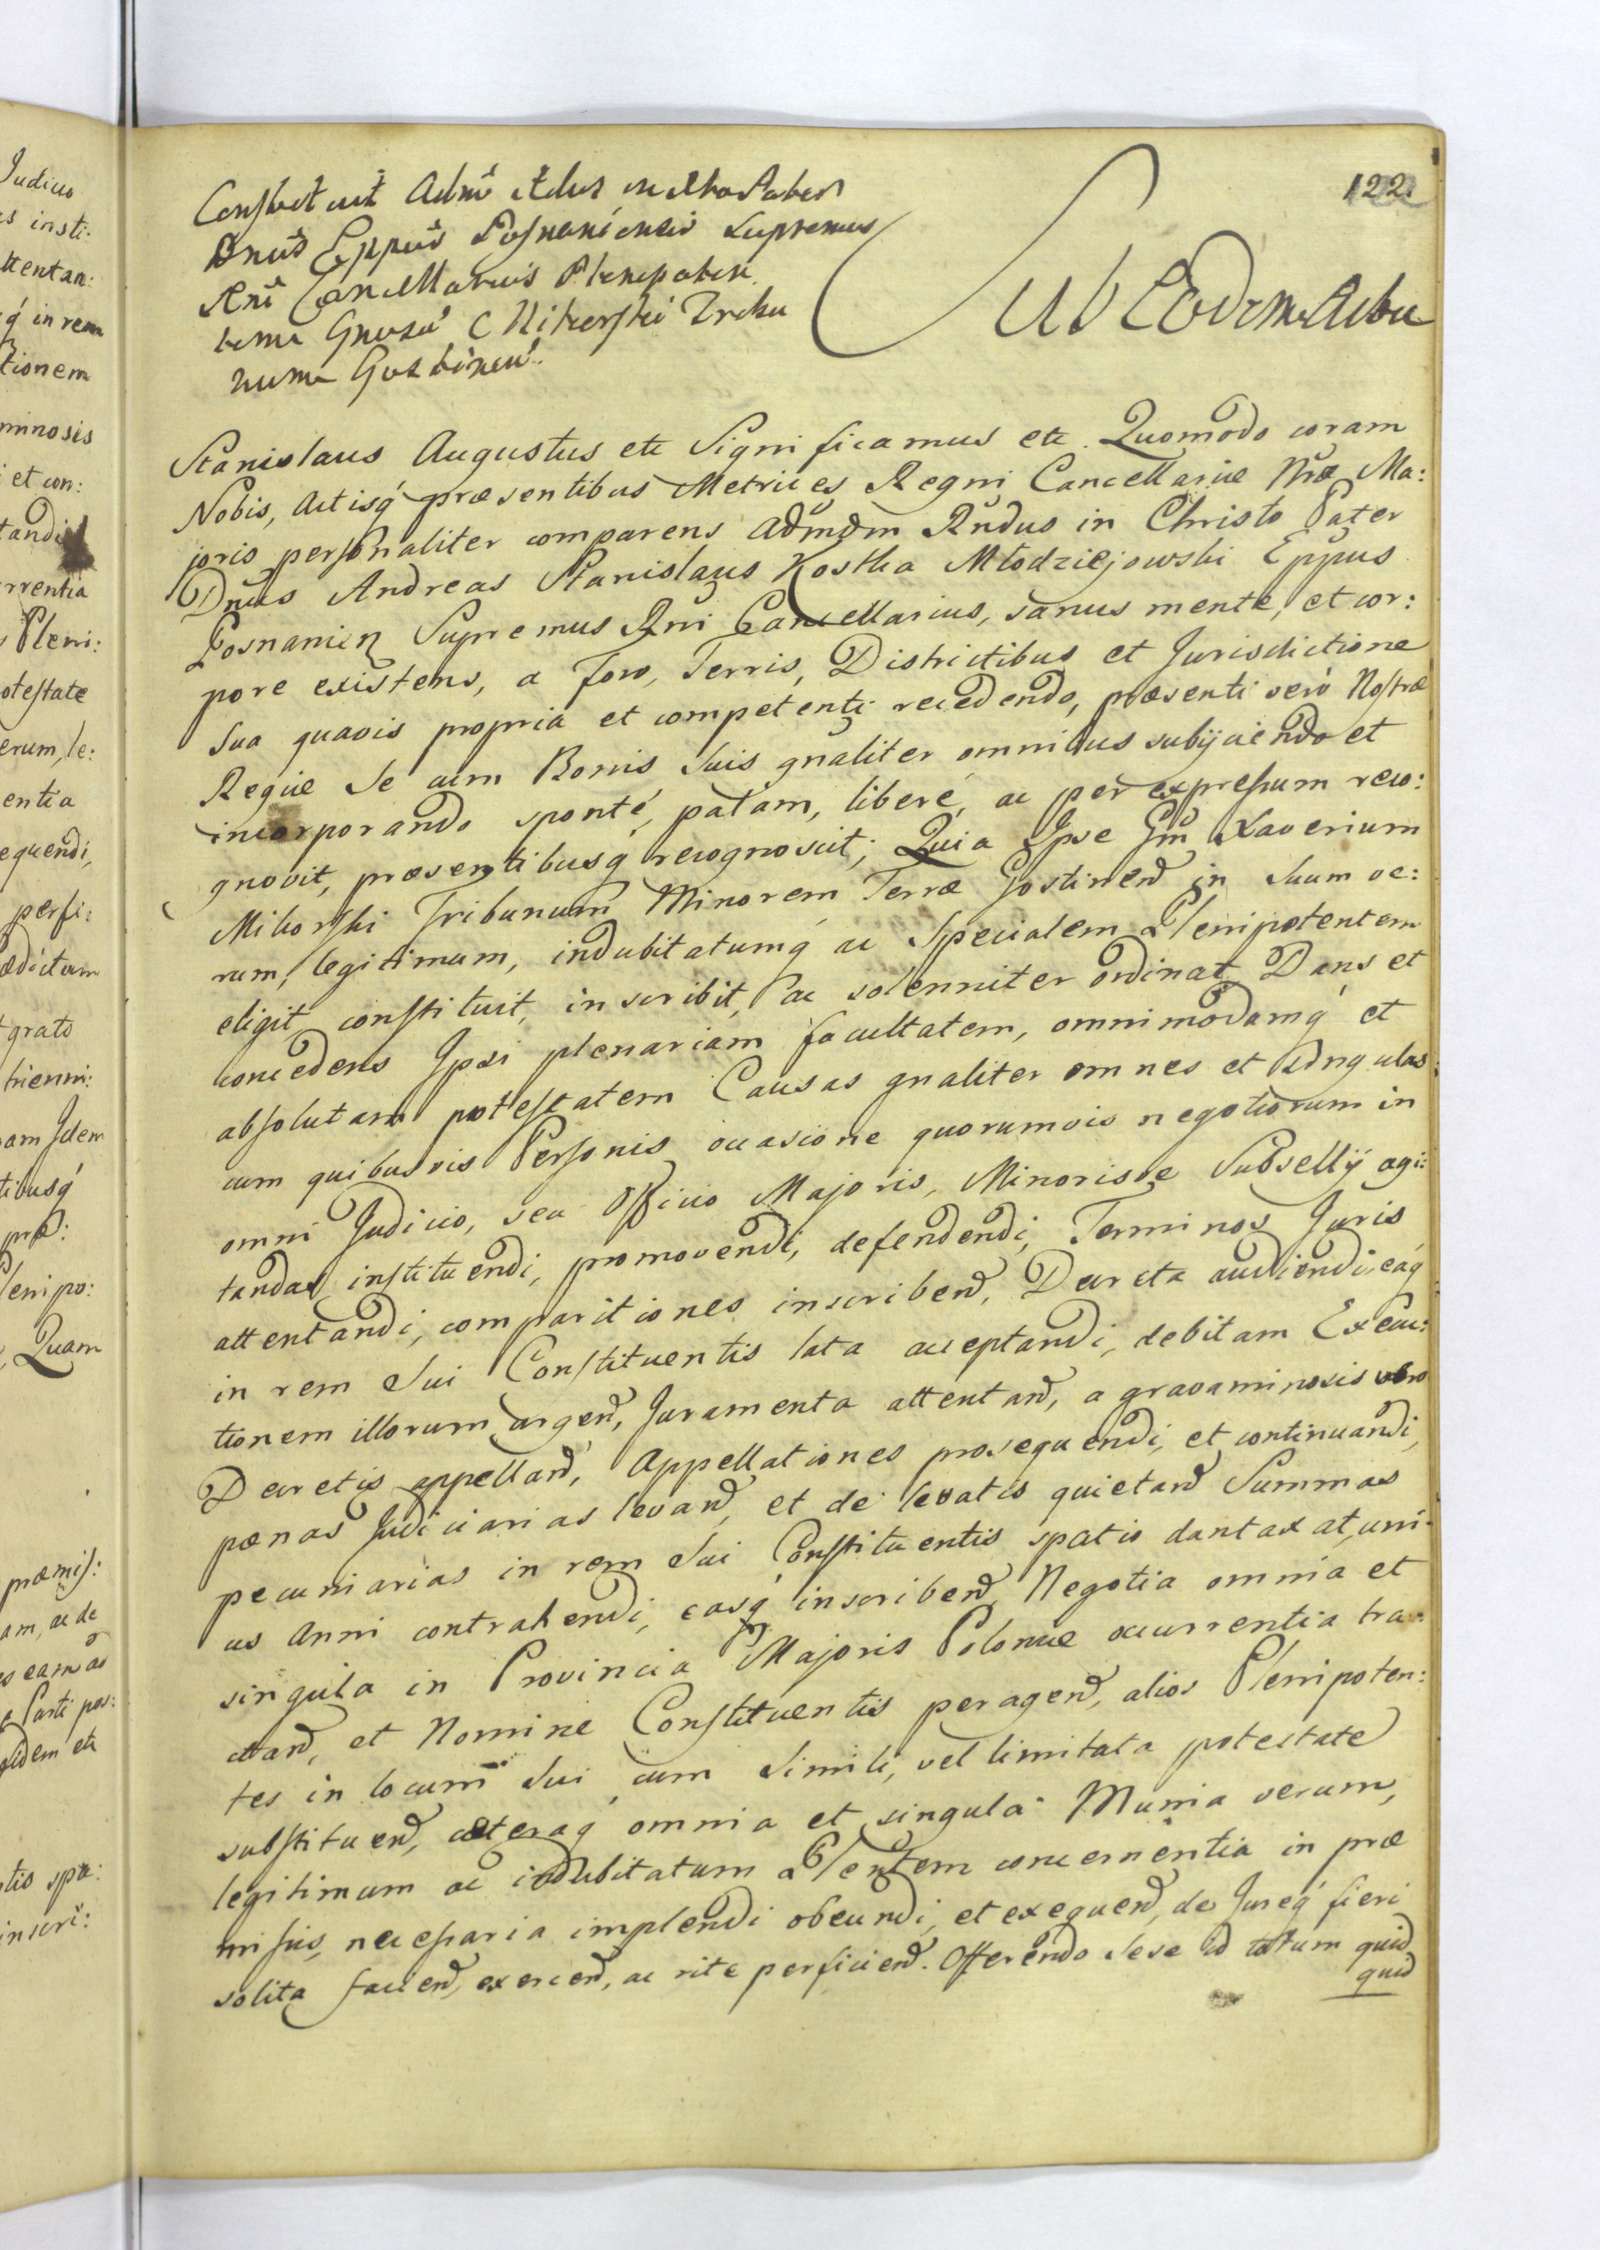 122
Constituit Admo Rdus in Chro Pater
Dnus Eppus Posnaniensis Supremus
Rni Cancellarius Plenipoten
tem Gnosu Mikorski Tribu
num Gostinen.
Sub Eodem Actu
Stanislaus Augustus etc Significamus etc. Quomodo coram
Nobis, Actisq́ præsentibus Metrices Regni Cancellariæ Nræ Ma:
joris personaliter comparens Admdm Rndus in Christo Pater
Dnus Andreas Stanislaus Kostka Młodziejowski Eppus
Posnanien Supremus Rni Cancellarius, sanus mente, et cor:
pore existens, a Foro, Terris, Districtibus et Jurisdictione
Sua quavis propria et competenti recedendo, præsenti verò Nostræ
Regiæ Se cum Bonis Suis gnaliter omnibus subijciendo et
incorporando sponté, palam, liberé, ac per expressum reco:
gnovit, præsentibusq́ recognoscit; Quia Ipse Gnm Xaverium
Mikorski Tribunum Minorem Terræ Gostinen in Suum ve:
rum, legitimum, indubitatumq́ ac Specialem Plenipotentem
eligit, constituit, inscribit, ac solenniter ordinat, Dans et
concedens Ipsi plenariam facultatem, omnimodamq́ et
absolutam potestatem Causas gnaliter omnes et singulas
cum quibusvis Personis occasione quorumvis negotiorum in
omni Judicio, seu Officio Majoris, Minorisve Subsellij agi:
tandas instituendi, promovendi, defendendi, Terminos Juris
attentandi, comparitiones inscribend, Decreta audiendi, eaq́
in rem Sui Constituentis lata acceptandi, debitam Execu:
tionem illorum urgend, Juramenta attentand, a gravaminosis vero
Decretis appelland, Appellationes prosequendi, et continuandi,
pœnas Judiciarias levand, et de levatis quietand Summas
pecuniarias in rem Sui Constituentis spatio dantaxat, uni:
us Anni contrahendi, easq́ inscribend, Negotia omnia et
singula in Provincia Majoris Poloniæ occurrentia tra:
ctand, et Nomine Constituentis peragend, alios Plenipoten:
tes in locum Sui cum Simili, vel limitata potestate
substituend, cæteraq́ omnia et singula Munia verum,
legitimum ac indubitatum Pltentem concernentia in præ
missis, necessaria implendi obeundi, et exequend, de Jureq́ fieri
solita faciend, exercend, ac rite perficiend. Offerendo Sese id totum quid
quid
Judicio
insti:
ttentan:
q́ in rem
tionem
minosis
et con:
tandi
rrentia
Pleni:
otestate
erum, le:
entia
equendi,
perfi:
ædictam
grato
trienni:
am Idem
tibusq́
præ:
Plenipo:
Quam
præmis:
am, ac de
eam ad
Parti pos:
qdem etc
tio spa:
inscri: